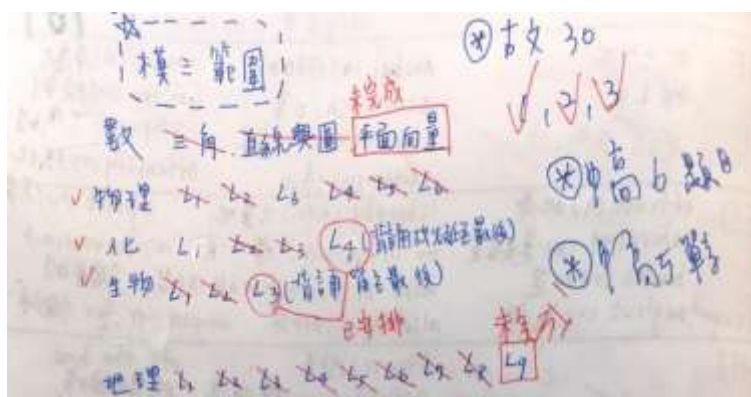 模三 範圍
未完成
數 三角 直線與圓 平面向量
✓ 物理 L1 L2 L3 L4 L5 L6
✓ 化 L1 L2 L3 L4 (背誦 留至最後)
✓ 生物 L1 L2 L3 (背誦 留至最後)
已安排
地理 L1 L2 L3 L4 L5 L6 L7 L8 L9
* 古文 30
1, 2, 3
* 中高 6 題
* 中高